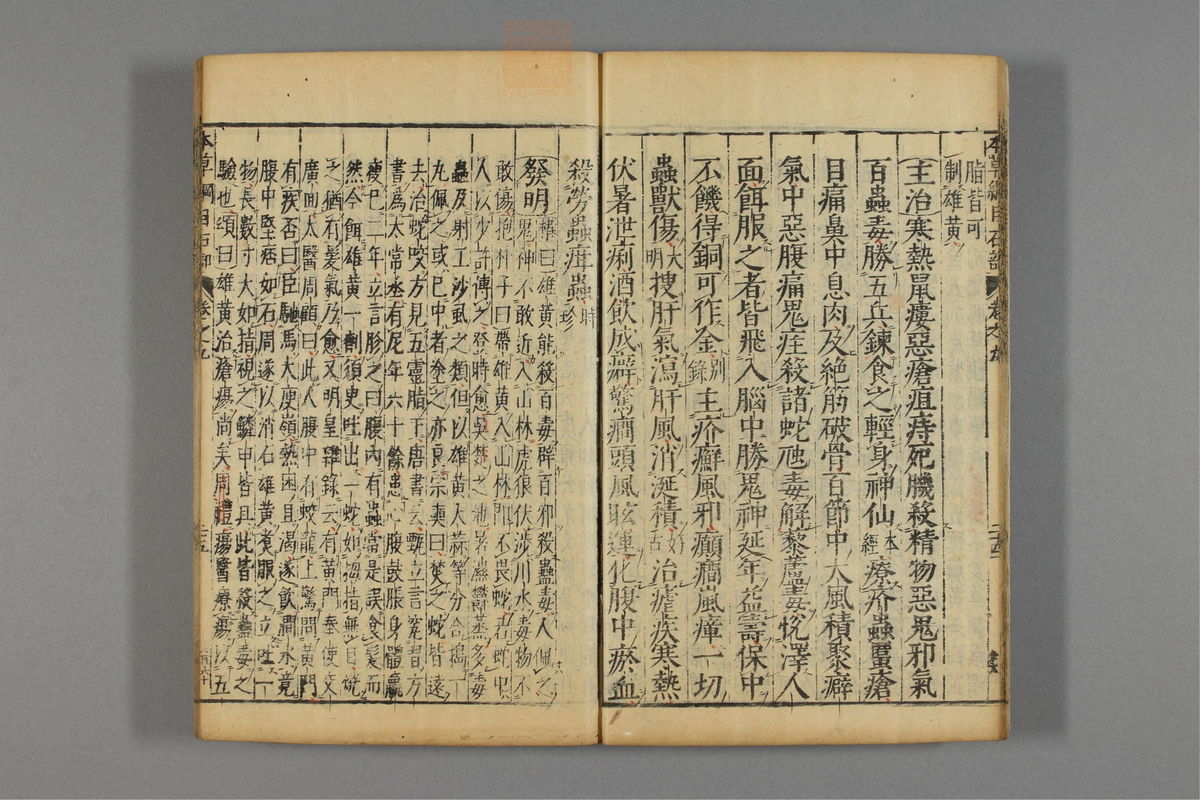 本草綱目石部 卷之九
脂皆可
制雄黃
主治寒熱鼠瘻惡瘡疽痔死肌殺精物惡鬼邪氣
百蟲毒勝五兵鍊食之輕身神仙本經療疥蟲䘌瘡
目痛鼻中息肉及絕筋破骨百節中大風積聚癖
氣中惡腹痛鬼疰殺諸蛇虺毒解藜蘆毒悅澤人
面餌服之者皆飛入腦中勝鬼神延年益壽保中
不饑得銅可作金別錄主疥癬風邪癲癇嵐瘴一切
蟲獸傷大明搜肝氣瀉肝風消涎積好古治瘧疾寒熱
伏暑泄痢酒飲成癖驚癇頭風眩運化腹中瘀血
殺勞蟲疳蟲時珍
發明權曰雄黃能殺百毒辟百邪殺蠱毒人佩之
鬼神不敢近入山林虎狼伏涉川水毒物不
敢傷抱朴子曰帶雄黃入山林即不畏蛇若蛇中
人以少許傅之登時愈吳楚之地暑濕鬱蒸多毒
蟲及射工沙虱之類但以雄黃大蒜等分合搗一
丸佩之或已中者塗之亦良宗奭曰焚之蛇皆遠
去治蛇咬方見五靈脂下唐書云甄立言究習方
書爲太常丞有尼年六十餘患心腹鼓脹身體羸
瘦已二年立言胗之曰腹內有蟲當是誤食髮而
然令餌雄黃一劑須臾吐出一蛇如拇指無目燒
之猶有髮氣乃愈又明皇雜錄云有黃門奉使交
廣回太醫周顧曰此人腹中有蛟龍上驚問黃門
有疾否曰臣馳馬大庾嶺熱困且渴遂飲澗水竟
腹中堅痞如石周遂以消石雄黃煮服之立吐一
物長數寸大如指視之鱗甲皆具此皆殺蠱毒之
驗也頌曰雄黃治瘡瘍尚矣周禮瘍醫療瘍以五
本草綱目石部 卷之九 二十五